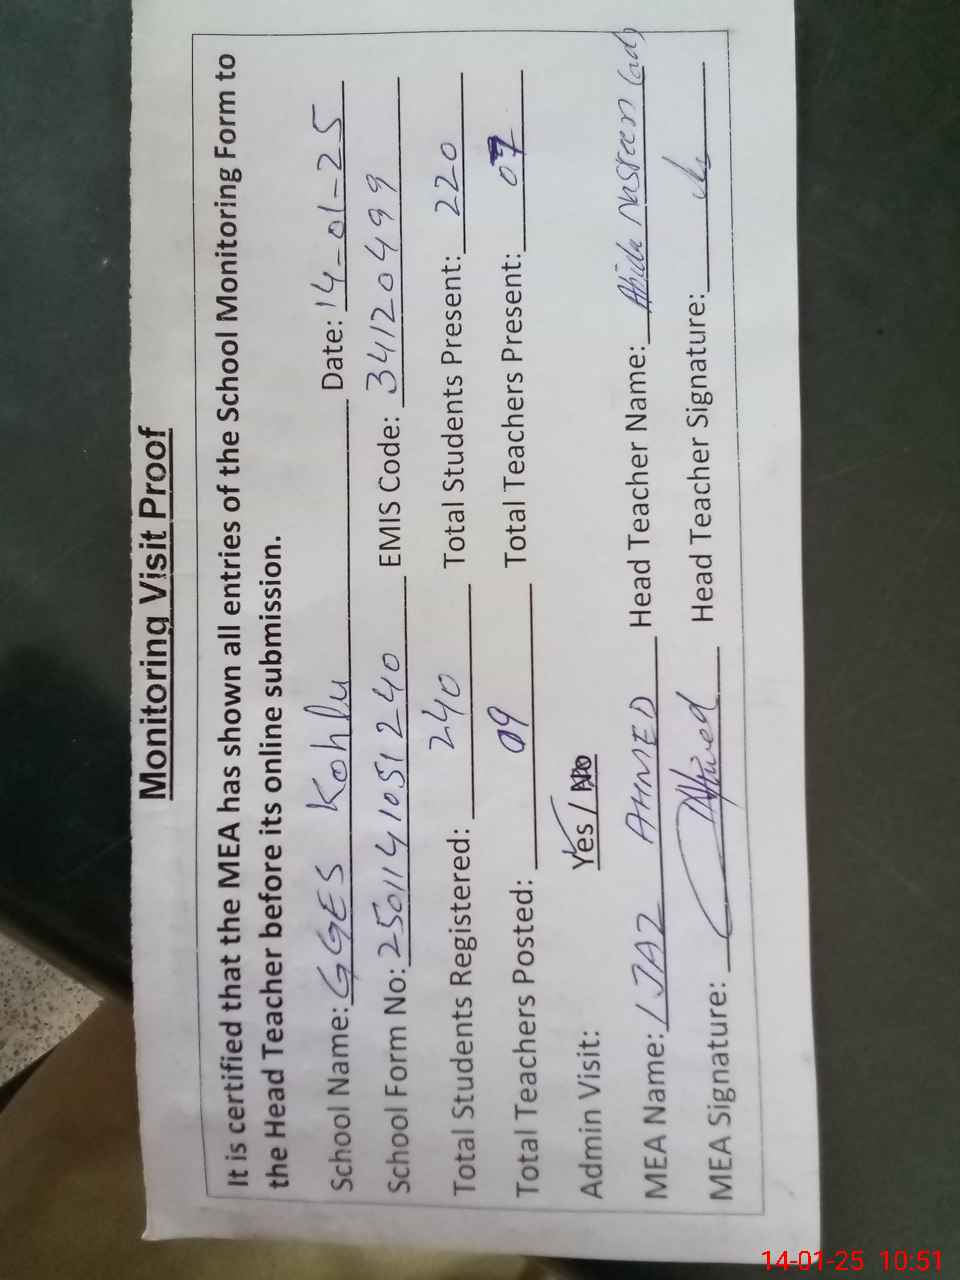 Monitoring Visit Proof
It is certified that the MEA has shown all entries of the School Monitoring Form to
the Head Teacher before its online submission.
School Name: GGES Kohlu Date: 14-01-25
School Form No: 2501141051240 EMIS Code: 34120499
Total Students Registered: 240 Total Students Present: 220
Total Teachers Posted: 09 Total Teachers Present: 07
Admin Visit: Yes / No
MEA Name: IJAZ AHMED Head Teacher Name: Abida Nasreen
MEA Signature: Head Teacher Signature:
14-01-25 10:51